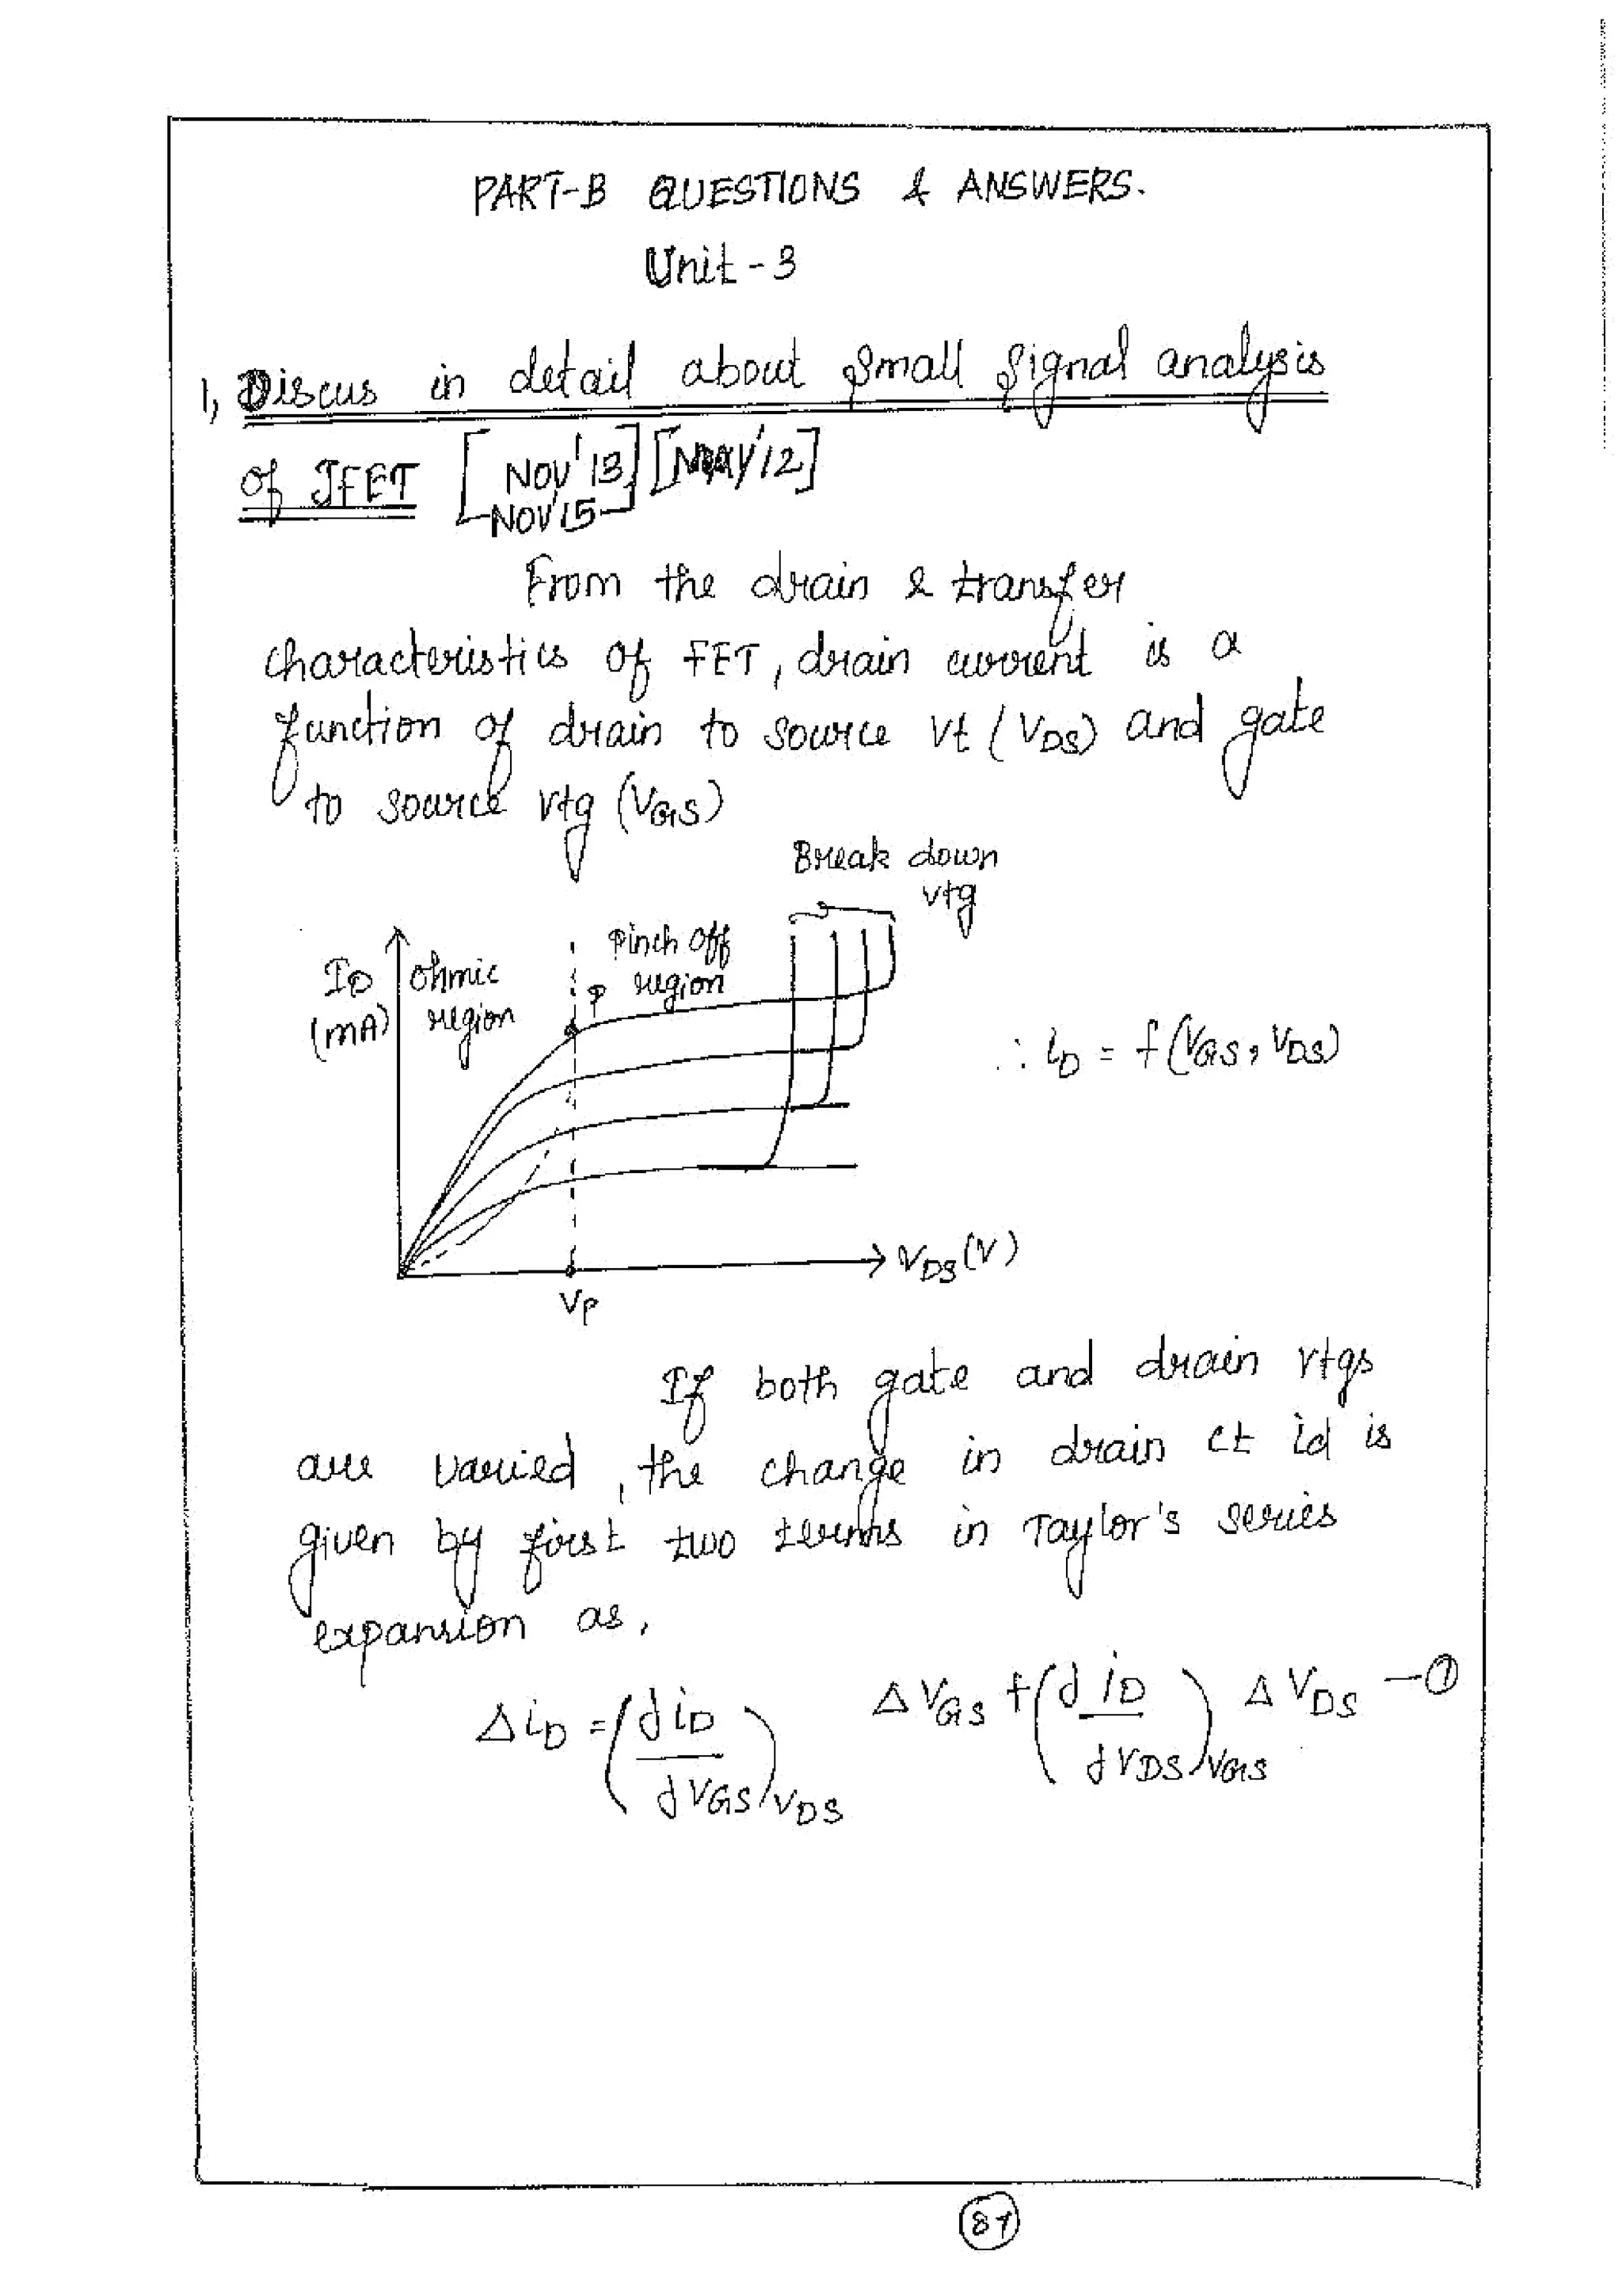 PART-B QUESTIONS & ANSWERS.
Unit - 3
1, Discus in detail about Small Signal analysis
of JFET [NOV'13 NOV'15] [MAY'12]
From the drain & transfer
characteristics of FET, drain current is a
function of drain to source Vt (VDS) and gate
to source vtg (VGS)
Break down
vtg
ID
(mA)
ohmic
region
Pinch off
region
P
∴ iD = f(VGS, VDS)
VDS(V)
VP
If both gate and drain vtgs
are varied, the change in drain ct id is
given by first two terms in Taylor's series
expansion as,
ΔiD = (∂iD/∂VGS)VDS ΔVGS + (∂iD/∂VDS)VGS ΔVDS —①